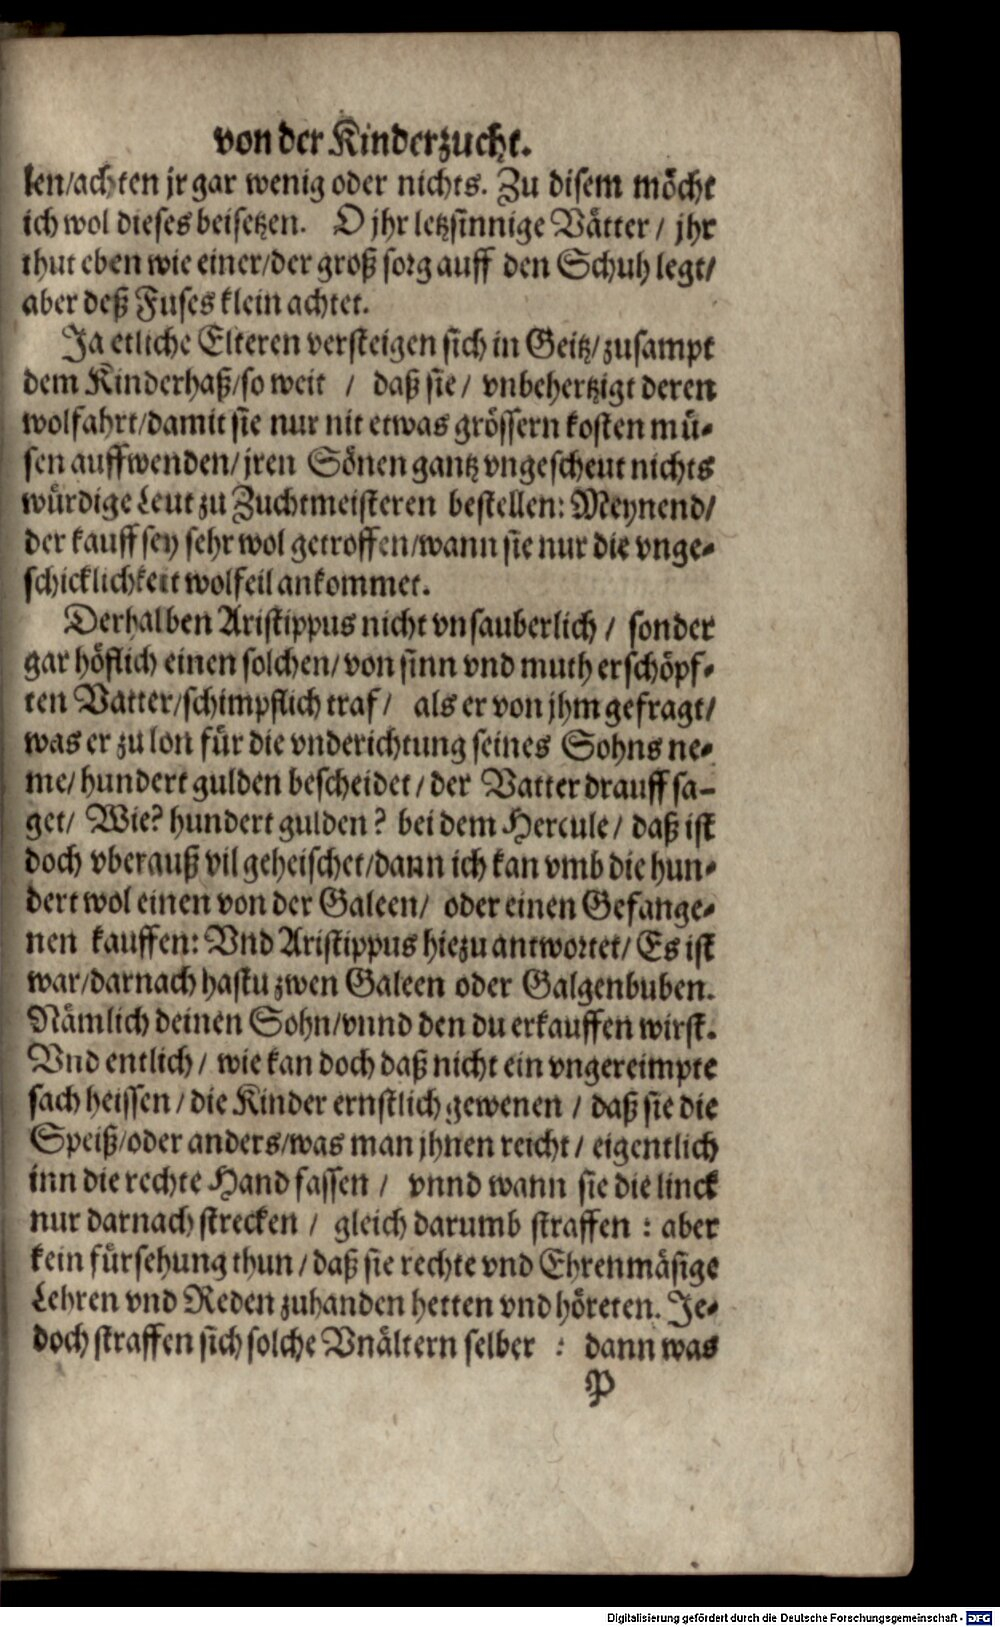 von der Kinderzucht.
len/achten jr gar wenig oder nichts. Zu disem möcht
ich wol dieses beisetzen. O jhr letzsinnige Vätter / jhr
thut eben wie einer/der groß sorg auff den Schuh legt/
aber deß Fuses klein achtet.
Ja etliche Elteren versteigen sich in Geitz/zusampt
dem Kinderhaß/so weit / daß sie / vnbehertzigt deren
wolfahrt/damit sie nur nit etwas grössern kosten mü-
sen auffwenden/jren Sönen gantz vngescheut nichts
würdige Leut zu Zuchtmeisteren bestellen: Meynend/
der kauff sey sehr wol getroffen/wann sie nur die vnge-
schicklichkeit wolfeil ankommet.
Derhalben Aristippus nicht vnsauberlich / sonder
gar höflich einen solchen/von sinn vnd muth erschöpf-
ten Vatter/schimpflich traf / als er von jhm gefragt/
was er zu lon für die vnderichtung seines Sohns ne-
me/hundert gulden bescheidet / der Vatter drauff sa-
get/ Wie? hundert gulden? bei dem Hercule / daß ist
doch vberauß vil geheischet/dann ich kan vmb die hun-
dert wol einen von der Galeen/ oder einen Gefange-
nen kauffen: Vnd Aristippus hiezu antwortet/ Es ist
war/darnach hastu zwen Galeen oder Galgenbuben.
Nämlich deinen Sohn/vnnd den du erkauffen wirst.
Vnd entlich / wie kan doch daß nicht ein vngereimpte
sach heissen / die Kinder ernstlich gewenen / daß sie die
Speiß/oder anders/was man jhnen reicht / eigentlich
inn die rechte Hand fassen / vnnd wann sie die linck
nur darnach strecken / gleich darumb straffen : aber
kein fürsehung thun / daß sie rechte vnd Ehrenmäsige
Lehren vnd Reden zuhanden hetten vnd höreten. Je-
doch straffen sich solche Vnältern selber : dann was
P
Digitalisierung gefördert durch die Deutsche Forschungsgemeinschaft - DFG